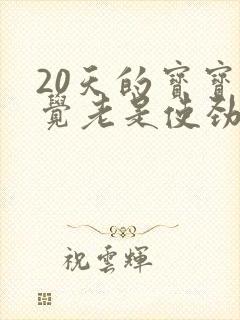 20天的寶寶
覺老是使勁
祝雲輝